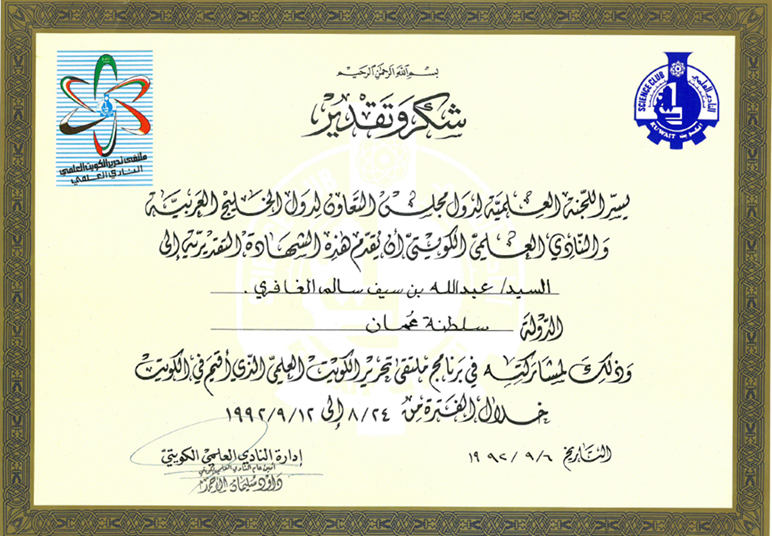 بسم الله الرحمن الرحيم
شكر وتقدير
ملتقى تحرير الكويت العلمي
النادي العلمي
SCIENCE CLUB
النادي العلمي
KUWAIT
يسر اللجنة العلمية لدول مجلس التعاون لدول الخليج العربية
والنادي العلمي الكويتي أن يقدم هذه الشهادة التقديرية إلى
السيد/ عبدالله بن سيف سالم الغافري .
الدولة سلطنة عُمان
وذلك لمشاركته في برنامج ملتقى تحرير الكويت العلمي الذي أقيم في الكويت
خلال الفترة من ٨/٢٤ إلى ١٩٩٢/٩/١٢
التاريخ ١٩٩٢/٩/٦
إدارة النادي العلمي الكويتي
أمين عام النادي العلمي الكويتي
داود سليمان الأحمد